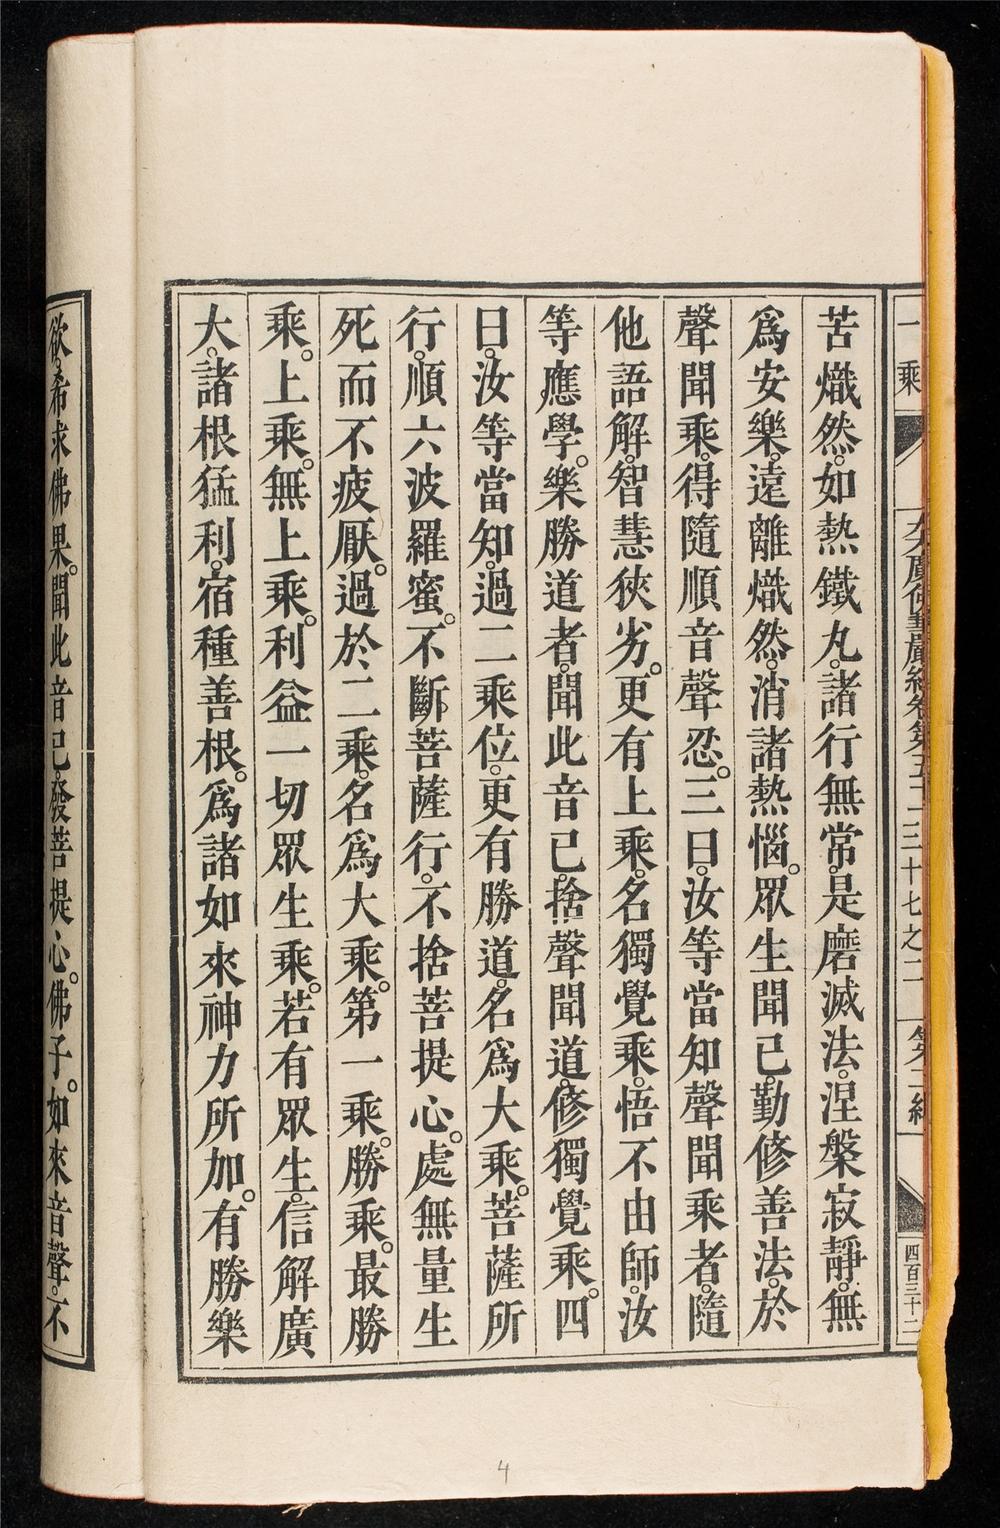 苦熾然。如熱鐵丸。諸行無常。是磨滅法。涅槃寂靜。無
爲安樂。遠離熾然。消諸熱惱。眾生聞已。勤修善法。於
聲聞乘。得隨順音聲忍。三曰。汝等當知聲聞乘者。隨
他語解。智慧狹劣。更有上乘。名獨覺乘。悟不由師。汝
等應學。樂勝道者。聞此音已。捨聲聞道。修獨覺乘。四
曰。汝等當知。過二乘位。更有勝道。名爲大乘。菩薩所
行。順六波羅蜜。不斷菩薩行。不捨菩提心。處無量生
死而不疲厭。過於二乘。名爲大乘。第一乘。勝乘。最勝
乘。上乘。無上乘。利益一切眾生乘。若有眾生。信解廣
大。諸根猛利。宿種善根。爲諸如來神力所加。有勝樂
欲。希求佛果。聞此音已。發菩提心。佛子。如來音聲。不